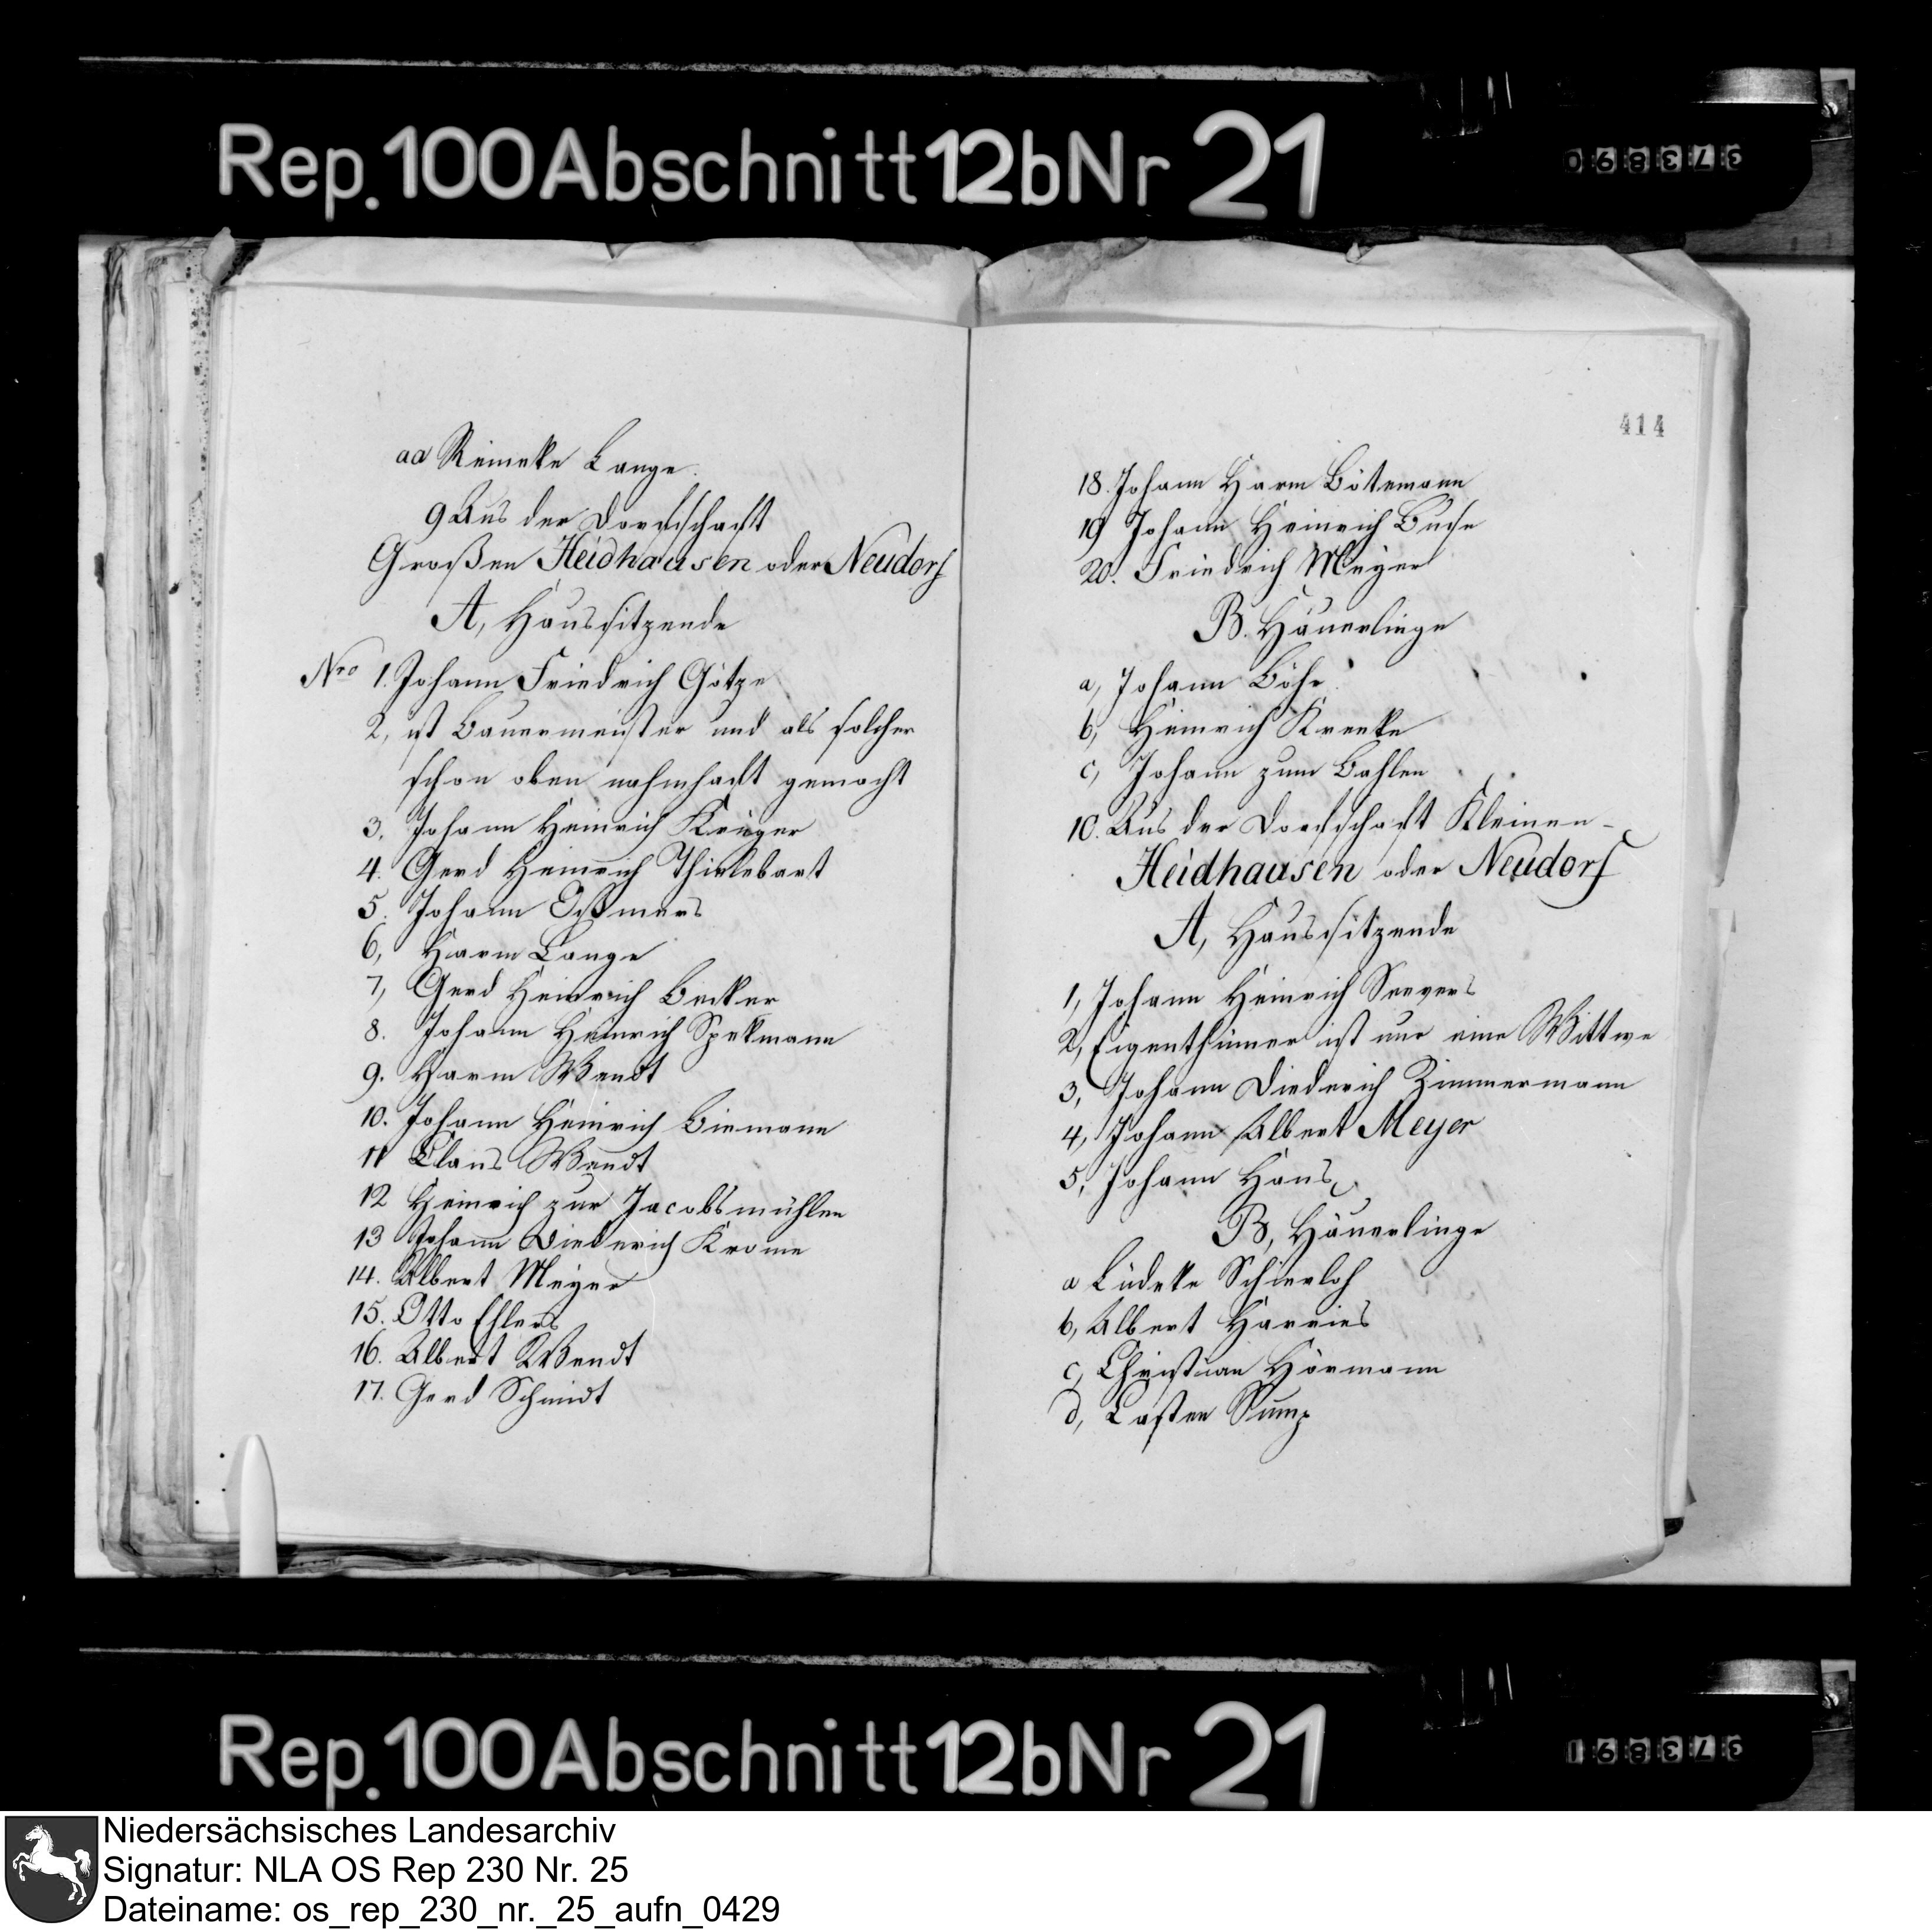 Rep. 100 Abschnitt 12b Nr 21
373890
aa Reineke Lange.
9 Aus der Dorffschafft
Großen Heidhausen oder Neudorf
A, Haussitzende
Nro 1. Johann Friedrich Götze
2, ist Bauermeister und als solcher
schon oben nahmhafft gemacht
3. Johann Heinrich Krüger
4. Gerd Heinrich Thielebart
5. Johann Oßmers
6, Harm Lange
7, Gerd Heinrich Becker
8. Johann Heinrich Spekmann
9. Harm Wendt
10. Johann Heinrich Biemann
11 Claus Wendt
12 Heinrich zur Jacobsmühlen
13 Johann Diederich Krome
14. Albert Meyer
15. Otto Ehlers
16. Albert Wendt
17. Gerd Schmidt
414
18. Johann Harm Bötemann
19 Johann Heinrich Buse
20. Friedrich Meyer
B. Häuerlinge
a, Johann Böse
b, Heinrich Kreeke
c, Johann zum Bahlen
10. Aus der Dorffschafft Kleinen-
Heidhausen oder Neudorf
A, Haussitzende
1, Johann Heinrich Seevers
2, Eigenthümer ist nur eine Wittwe
3, Johann Diederich Zimmermann
4, Johann Albert Meyer
5, Johann Haus
B, Häuerlinge
a Lüdeke Schierloh
b, Albert Harries
c, Christian Hörmann
d, Casten Rump
Rep. 100 Abschnitt 12b Nr 21
373891
Niedersächsisches Landesarchiv
Signatur: NLA OS Rep 230 Nr. 25
Dateiname: os_rep_230_nr._25_aufn_0429